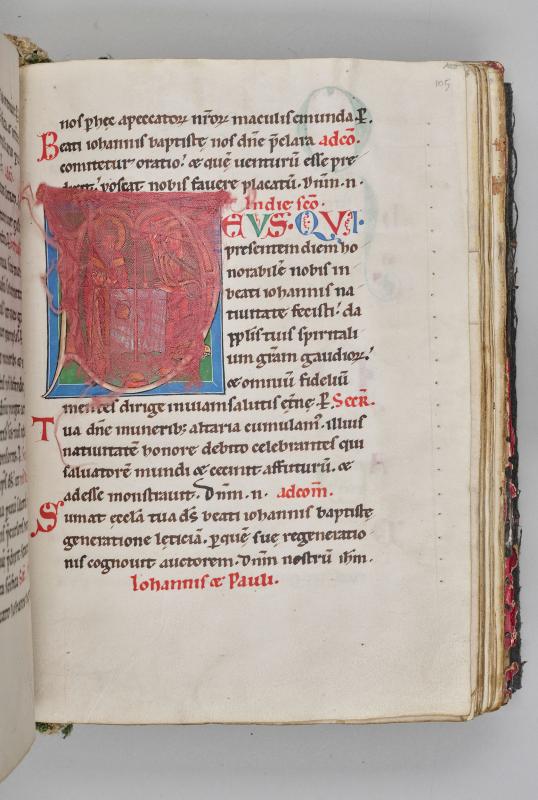 105
nos p hec a peccatoꝝ nr̄oꝝ maculis emunda. P.
Beati iohannis baptistę nos dn̄e p̄clara adcō.
comitetur oratio. & quę uenturū esse pre
poscat nobis fauere placatū. Dnm̄. n.
In die scō.
EVS. QVI
presentem diem ho
norabilē nobis in
beati iohannis na
tiuitate fecisti. da
pplis tuis spiritali
um gr̄am gaudioꝝ.
& omniū fidelium
mentes dirige in uiam salutis ęt̄nę. P. Secr̄.
Tua dn̄e munerib; altaria cumulam᾽. illius
natiuitatē honore debito celebrantes qui
saluatorē mundi & cecinit affuturū. &
adesse monstrauit. Dnm̄. n. adcom̄.
Sumat ecclā tua ds̄ beati iohannis baptistę
generatione lęticiā. p quē suę regeneratio
nis cognouit auctorem. Dnm̄ nostrū ihm̄.
Iohannis & Pauli.